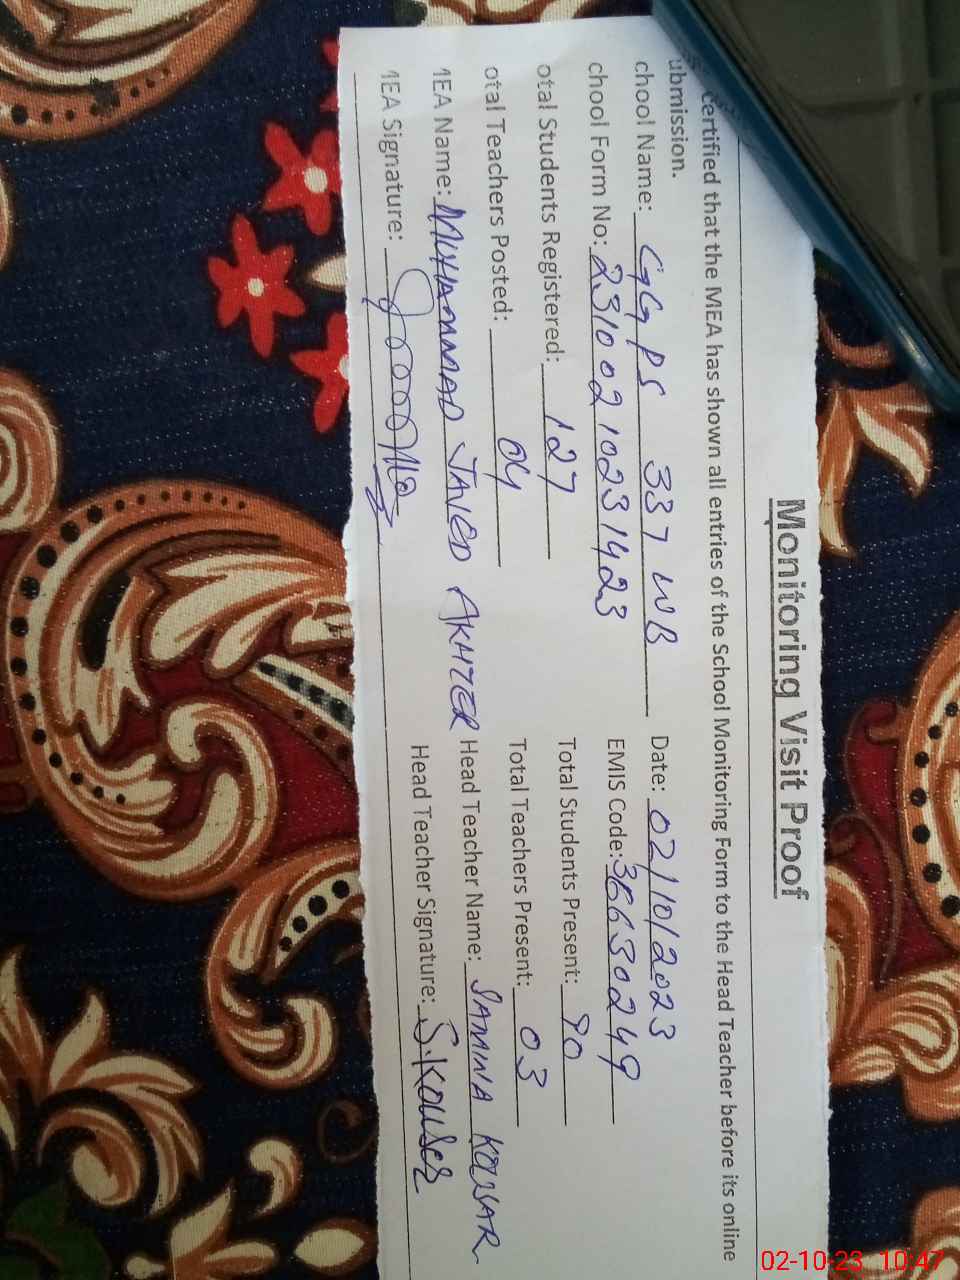 Monitoring Visit Proof
Certified that the MEA has shown all entries of the School Monitoring Form to the Head Teacher before its online
ubmission.
chool Name: GGPS 337 WB Date: 02/10/2023
chool Form No: 23100210231423 EMIS Code: 36630249
otal Students Registered: 127 Total Students Present: 90
otal Teachers Posted: 04 Total Teachers Present: 03
MEA Name: MUHAMMAD JAVED AKHTER Head Teacher Name: SAMINA KOUSAR
MEA Signature: Head Teacher Signature: S.Kouser
02-10-23 10:47